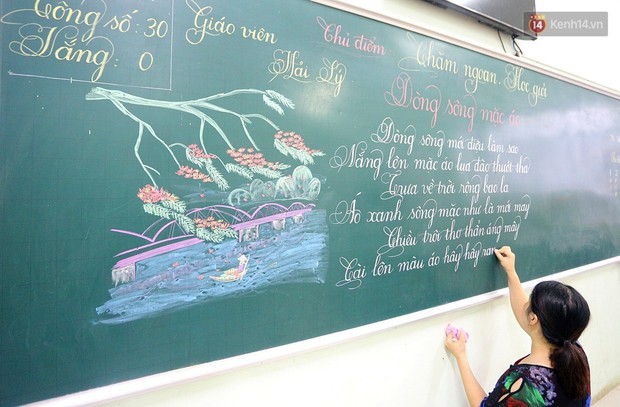 Tổng số: 30
Vắng: 0
Giáo viên
Hải Lý
Chủ điểm
Chăm ngoan - Học giỏi
Dòng sông mặc áo
Dòng sông mới điệu làm sao
Nắng lên mặc áo lụa đào thướt tha
Trưa về trời rộng bao la
Áo xanh sông mặc như là mới may
Chiều trôi thơ thẩn áng mây
Cài lên màu áo hây hây ráng
14
Kenh14.vn